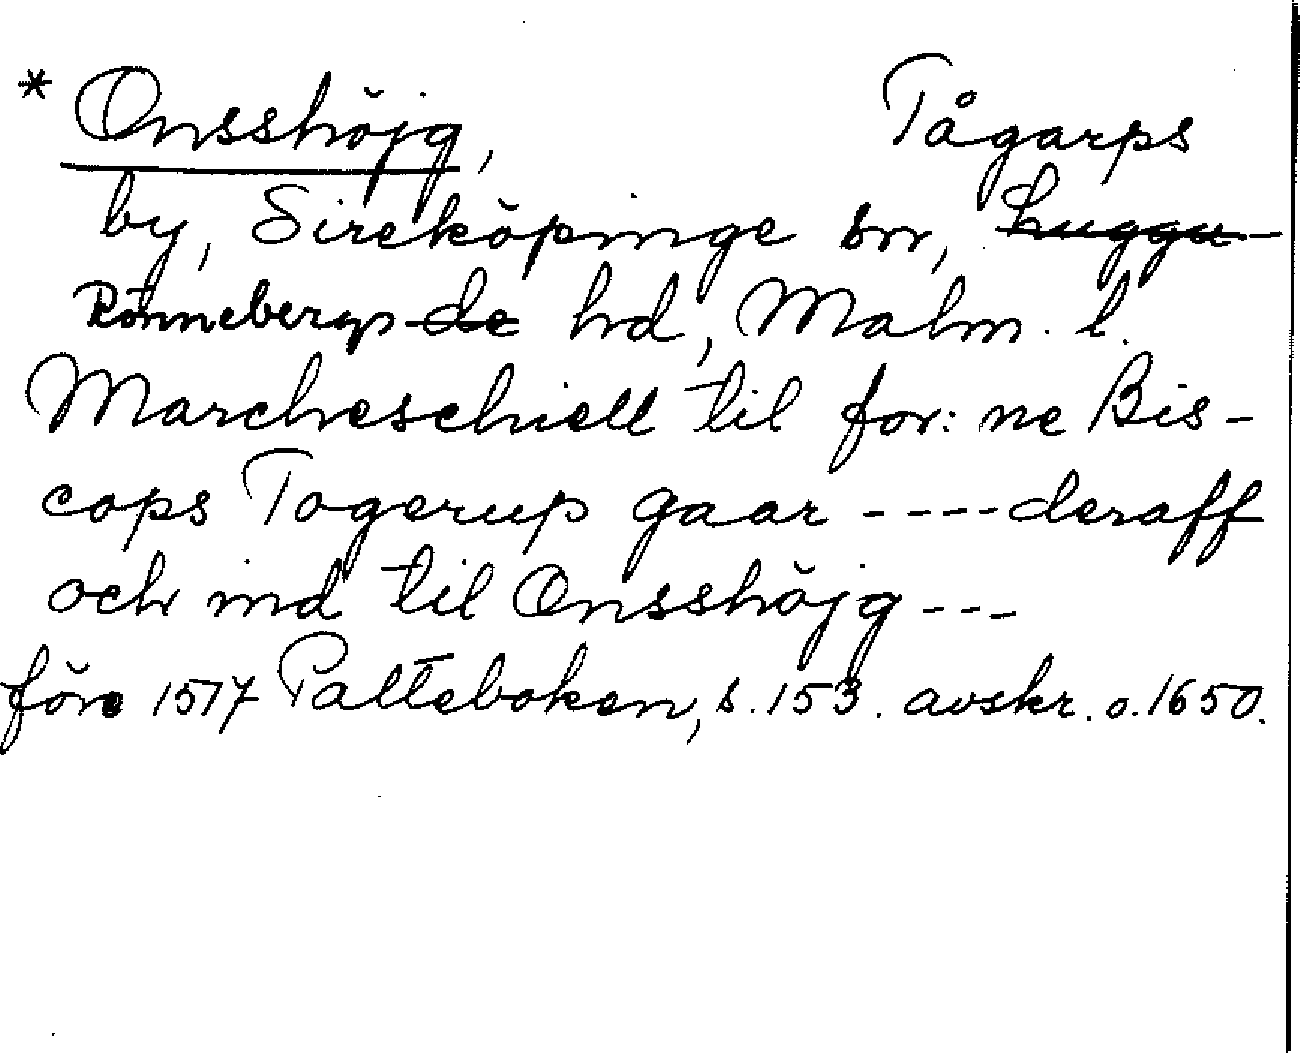 * Onsshöjg, Tågarps
by, Sireköpinge sn, Luggu-
Rönnebergs de hd, Malm. l.
Marcheschiell til for: ne Bis-
cops Togerup gaar ---- deraff
och ind til Onsshöjg ---
före 1517 Palteboken, s. 153. avskr. o. 1650.